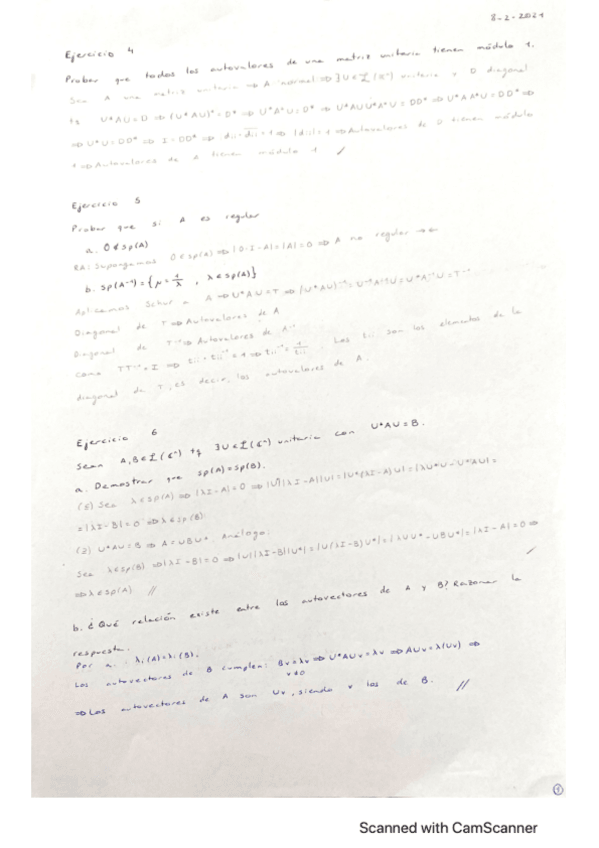 8-2-2021
Ejercicio 4
Probar que todos los autovalores de una matriz unitaria tienen módulo 1.
Sea A una matriz unitaria ⇒ A normal ⇒ ∃U∈ℒ(ℂⁿ) unitaria y D diagonal
tq U*AU=D ⇒ (U*AU)*=D* ⇒ U*A*U=D* ⇒ U*AUU*A*U=DD* ⇒ U*AA*U=DD* ⇒
⇒ U*U=DD* ⇒ I=DD* ⇒ dii·dii=1 ⇒ |dii|=1 ⇒ Autovalores de D tienen módulo
1 ⇒ Autovalores de A tienen módulo 1
Ejercicio 5
Probar que si A es regular
a. 0∉sp(A)
RA: Supongamos 0∈sp(A) ⇒ |0·I-A|=|A|=0 ⇒ A no regular →←
b. sp(A⁻¹)={μ=1/λ, λ∈sp(A)}
Aplicamos Schur a A ⇒ U*AU=T ⇒ (U*AU)⁻¹=U⁻¹A⁻¹U=U*A⁻¹U=T⁻¹
Diagonal de T ⇒ Autovalores de A
Diagonal de T⁻¹ ⇒ Autovalores de A⁻¹
Como TT⁻¹=I ⇒ tii·tii⁻¹=1 ⇒ tii⁻¹=1/tii. Los tii son los elementos de la
diagonal de T, es decir, los autovalores de A.
Ejercicio 6
Sean A,B∈ℒ(ℂⁿ) tq ∃U∈ℒ(ℂⁿ) unitaria con U*AU=B.
a. Demostrar que sp(A)=sp(B).
(⊆) Sea λ∈sp(A) ⇒ |λI-A|=0 ⇒ |U*||λI-A||U|=|U*(λI-A)U|=|λU*U-U*AU|=
=|λI-B|=0 ⇒ λ∈sp(B).
(⊇) U*AU=B ⇒ A=UBU*. Análogo:
Sea λ∈sp(B) ⇒ |λI-B|=0 ⇒ |U||λI-B||U*|=|U(λI-B)U*|=|λUU*-UBU*|=|λI-A|=0 ⇒
⇒ λ∈sp(A) //
b. ¿Qué relación existe entre los autovectores de A y B? Razonar la
respuesta.
Por a.: λi(A)=λi(B).
Los autovectores de B cumplen: Bv=λv ⇒ U*AUv=λv ⇒ AUv=λ(Uv) ⇒
v≠0
⇒ Los autovectores de A son Uv, siendo v los de B. //
1
Scanned with CamScanner